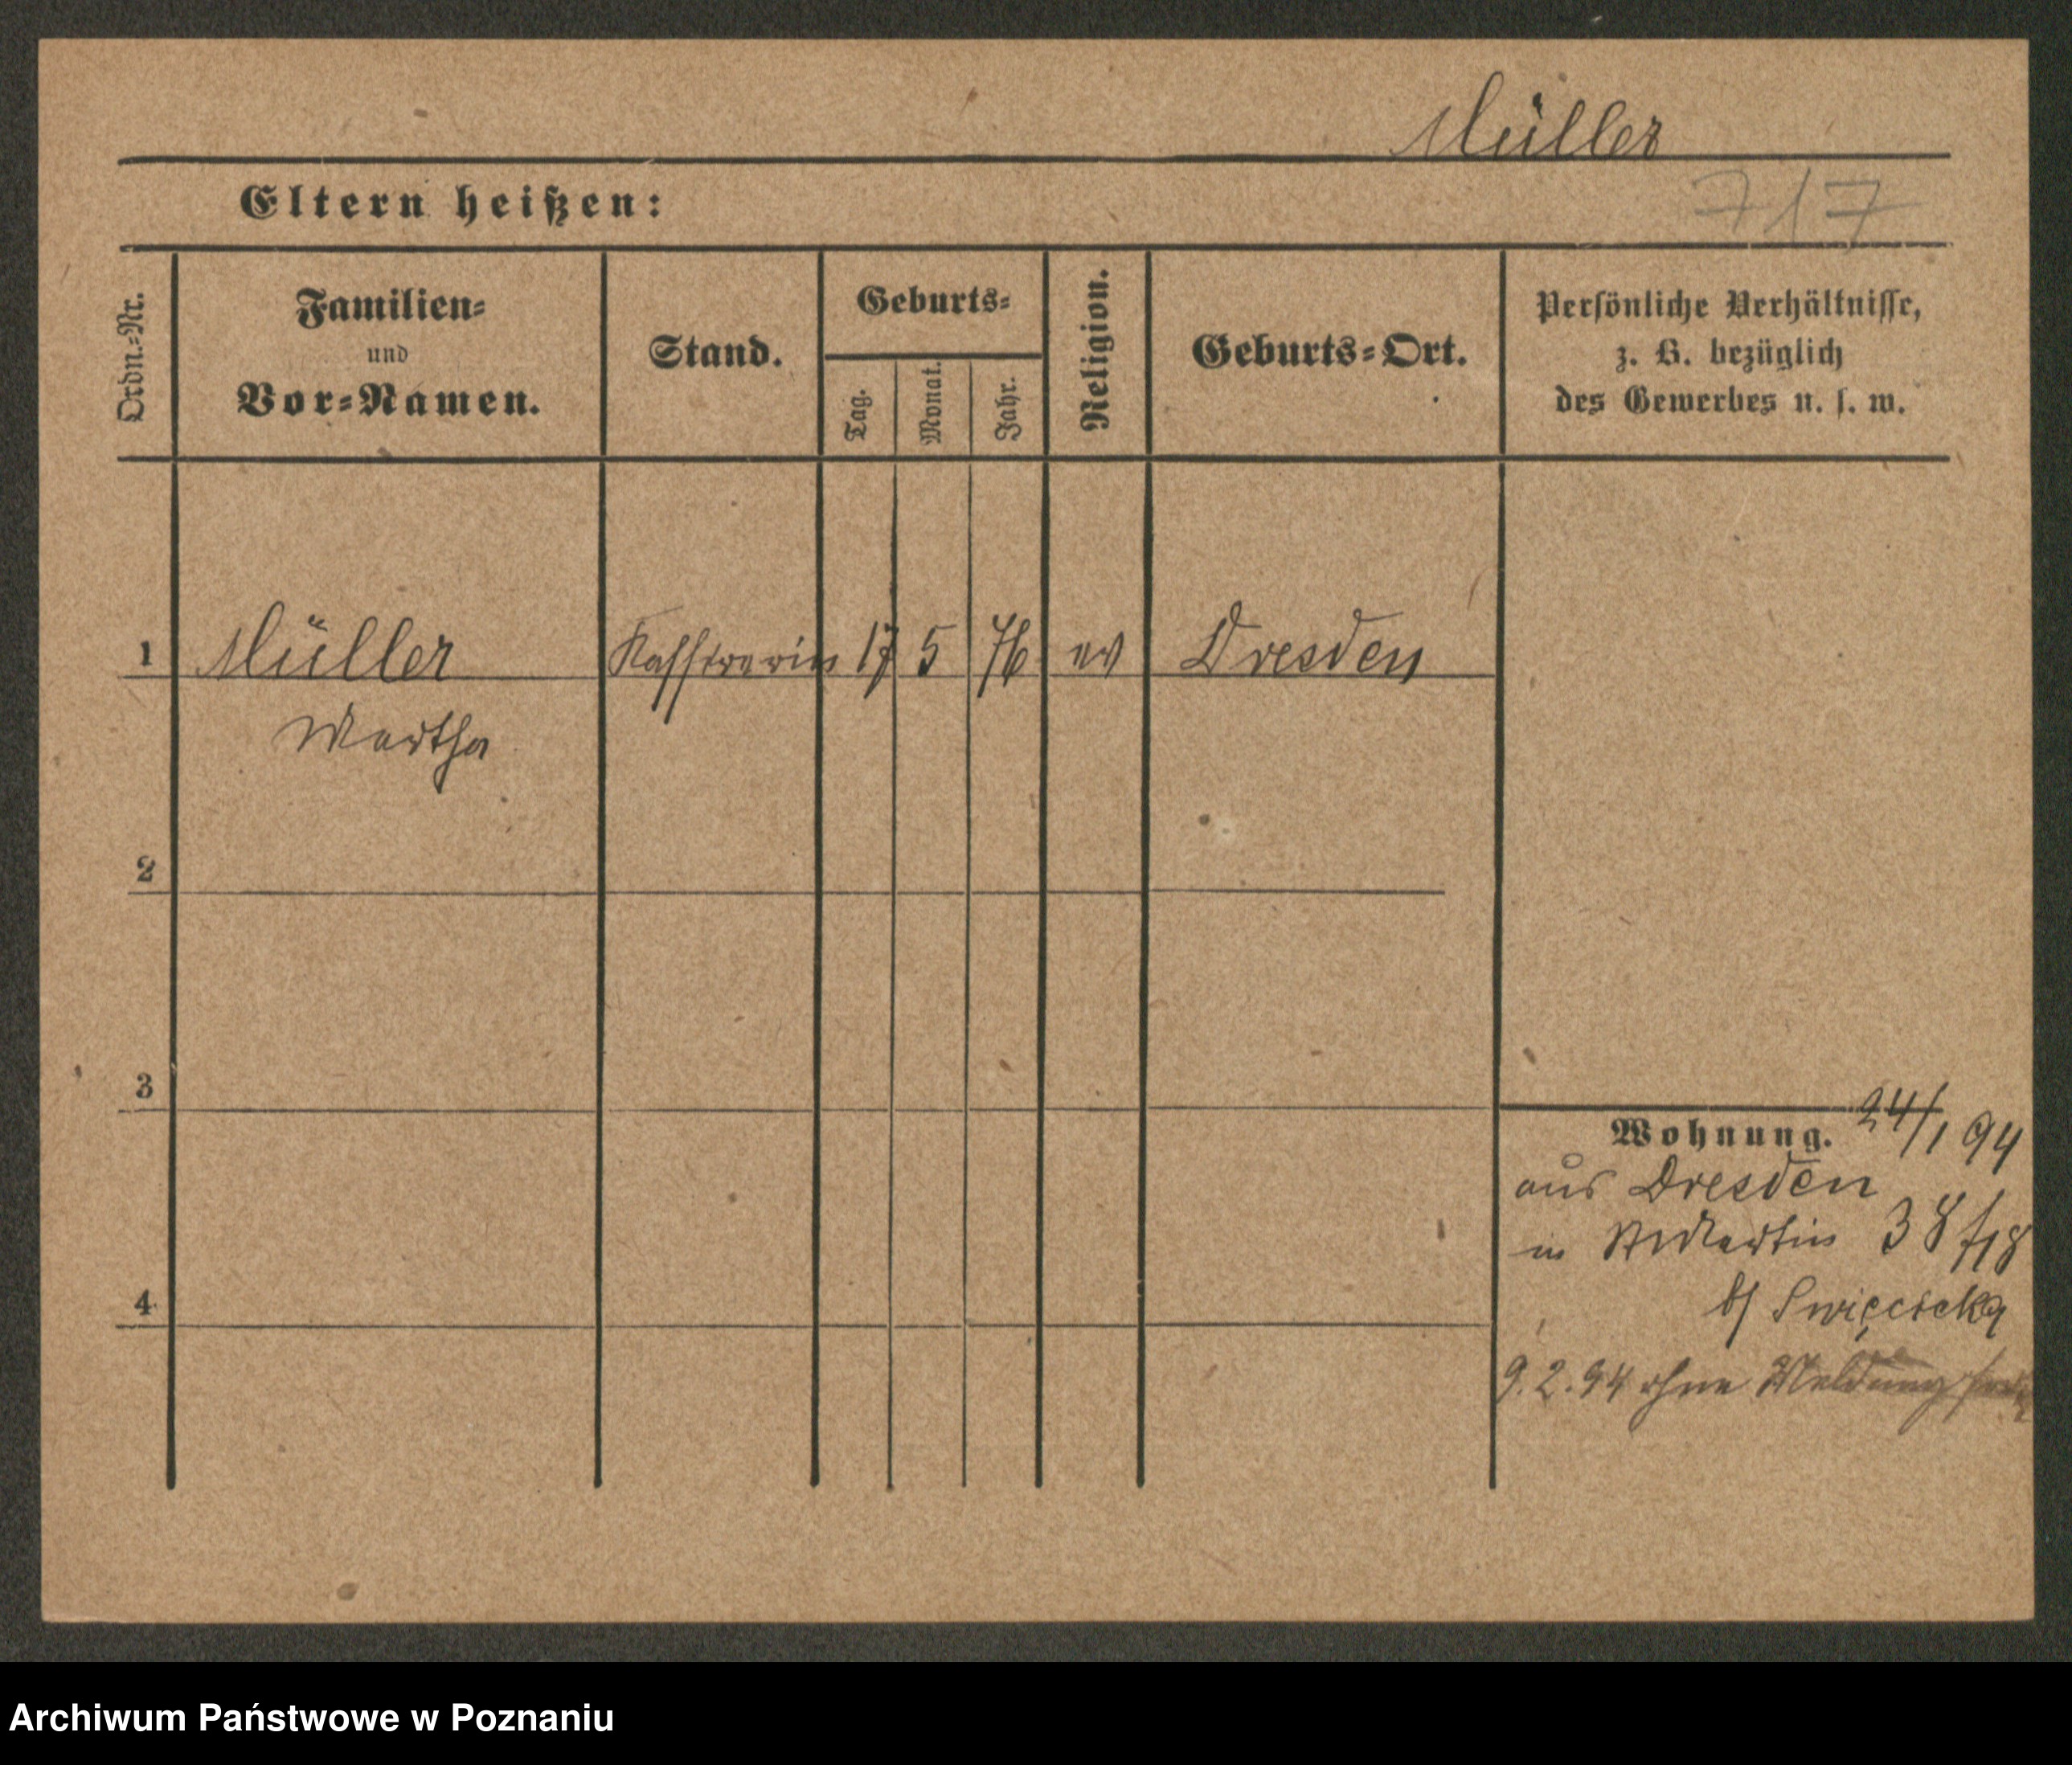 Müller
Eltern heißen:
717
Ordn.-Nr.
Familien-
und
Vor-Namen.
Stand.
Geburts-
Tag.
Monat.
Jahr.
Religion.
Geburts-Ort.
Persönliche Verhältnisse,
z. B. bezüglich
des Gewerbes u. s. w.
1 Müller Kassirerin 17 5 76 ev Dresden
Martha
2
3
4
Wohnung. 24/1 94
aus Dresden
in St Martin 38/18
b/ Swięcicka
9.2.94 ohne Meldung
Archiwum Państwowe w Poznaniu